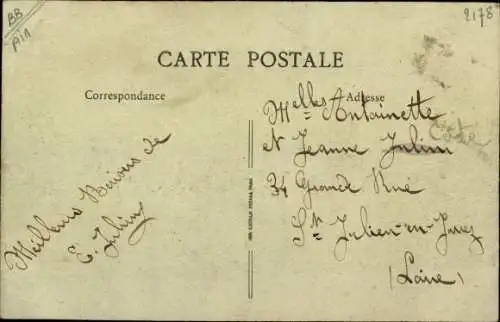 BB
AIN
2178
CARTE POSTALE
Correspondance
Adresse
Meilleurs Baisers de
E. Julin
Melles Antoinette
et Jeanne Julin
34 Grande Rue
St Julien-en-Jarez
(Loire)